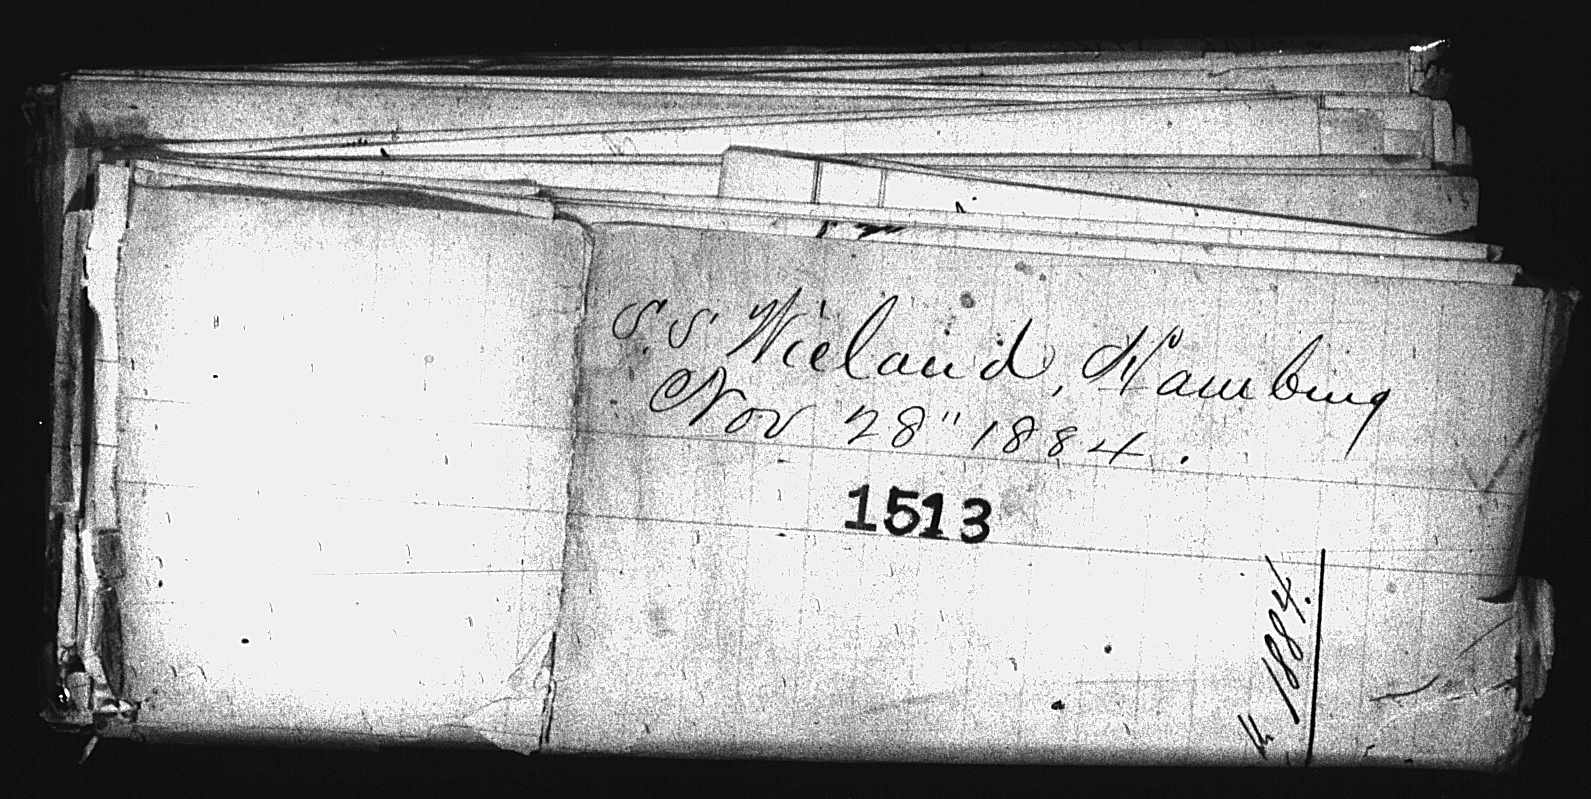 S.S. Wieland, Hamburg
Nov 28" 1884.
1513
1884.